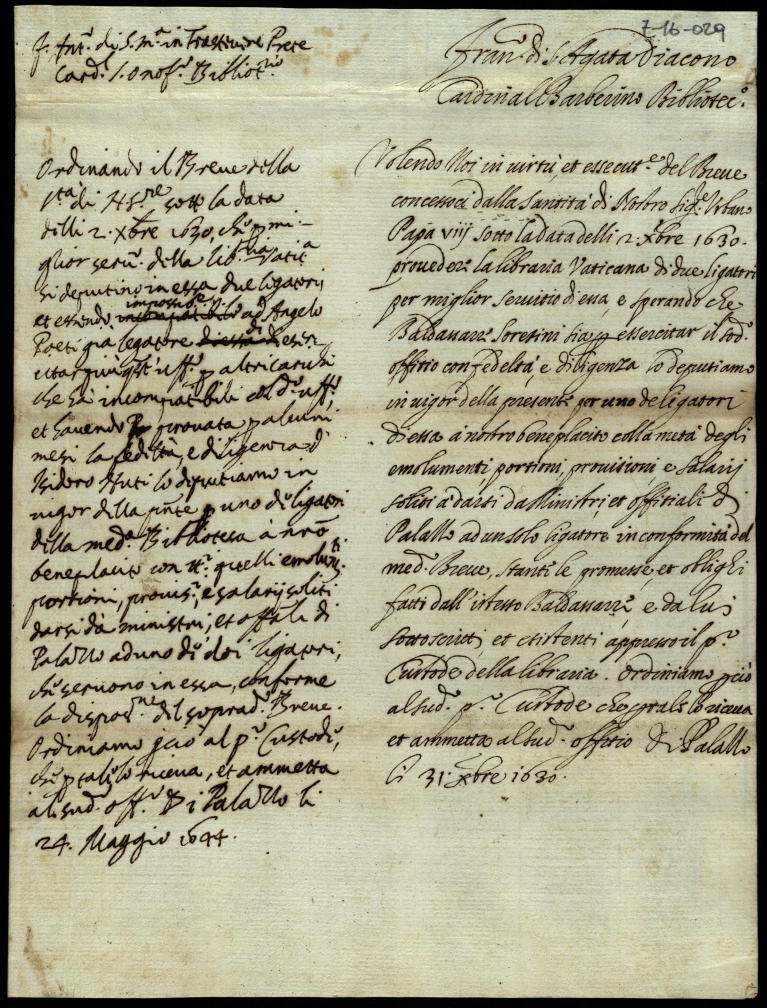 7-16-029
F. Ant.º di S. M.ª in Trastevere Prete
Card.l S. Onof.º Bibliot.rio
Ordinando il Breve della
S.tà di N. S.re sotto la data
delli 2. Xbre 1630, che p mi-
glior serv.º della lib.ria Vatic.a
si deputino in essa due ligatorij
et essendo impossibile ad Angelo
Poeti già legatore
citar più q.to uff.º p altri carichi
che ha incompatibili col d.º uff.º
et havendo provata p alcuni
mesi la fedeltà, e diligenza d
Isidoro lo deputiamo in
vigor della pnte p uno de ligatori
della med.ª Biblioteca à nrõ
beneplacito con tt.i quelli emolum.ti
portioni, provis.i, e salarij soliti
darsi da ministri, et offitiali di
Palazzo ad uno de doi ligatori,
che servono in essa, conforme
la dispos.ne del soprad.º Breve.
Ordiniamo pciò al p.º Custode,
che p tale lo riceva, et ammetta
al sud.º off.º Di Palazzo li
24. Maggio 1644.
Fran.º di S. Agata Diacono
Cardinal Barberino Bibliotec.º
Volendo Noi in virtù, et essecut.e del Breve
concessoci dalla Santità di Nostro Sig.re Urbano
Papa viij sotto la data delli 2. Xbre 1630.
provedere la libraria Vaticana di due ligattri
per miglior servitio di essa, e sperando che
Baldassarre Soresini sia p essercitar il sod.º
offitio con fedeltà, e diligenza lo deputiamo
in vigor della presente per uno de ligatori
di essa à nostro beneplacito colla metà degli
emolumenti, portioni, provisioni, e salarij
soliti à darsi da Ministri, et offitiali di
Palazzo ad un solo ligatore in conformità del
med.º Breve, stanti le promesse, et oblighi
fatti dall'istesso Baldassarre, e da lui
sottoscritti et esistenti appresso il p.º
Custode della libraria. Ordiniamo pciò
al sud.º p.º Custode che p tale lo riceva
et ammetta al sud.º offitio Di Palazzo
li 31. Xbre 1630.